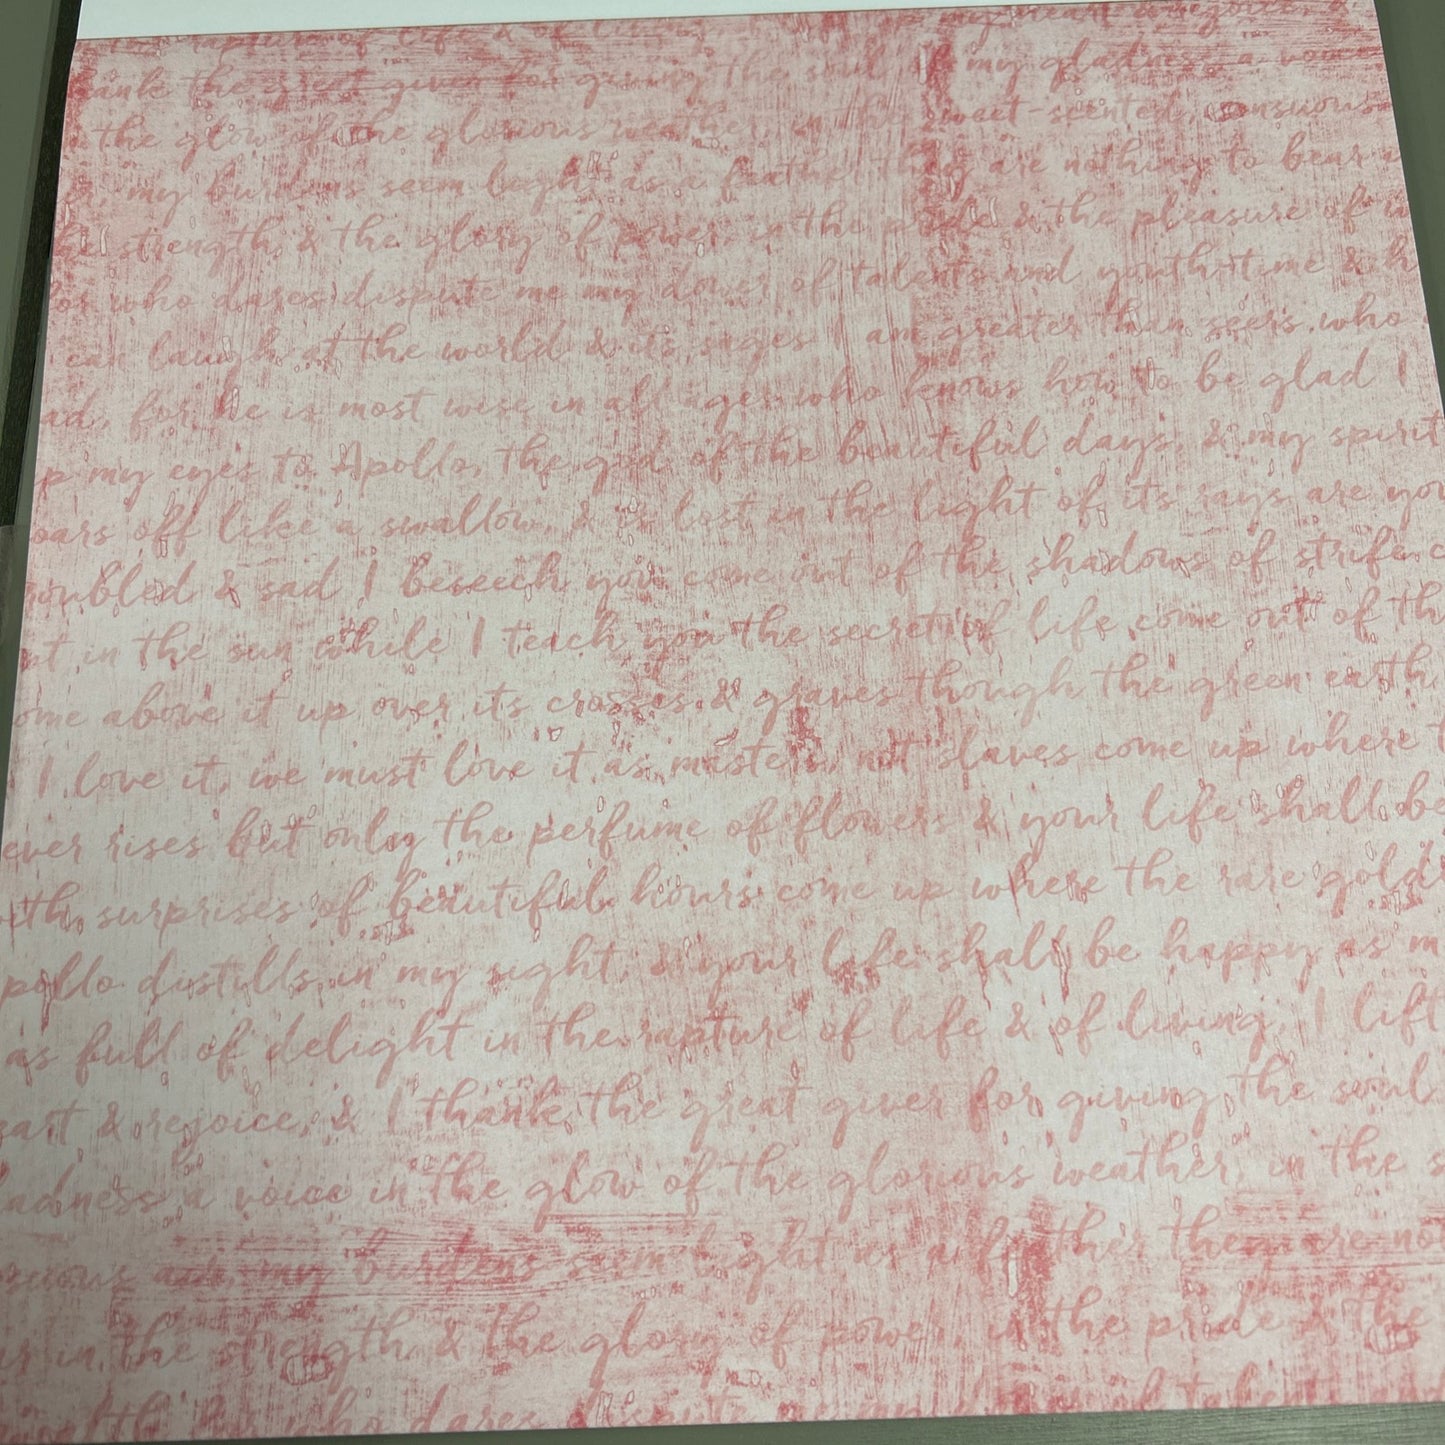 rapture of life & of living, my heart & rejoice, &
ank the great giver for giving the soul of my gladness a voi
the glow of the glorious weather, in the sweet-scented, sensuous
, my burdens seem light as a feather they are nothing to bear
he strength, & the glory of power, in the pride & the pleasure of
for who dares dispute me my dower of talents and youth-time &
can laugh at the world & its sages I am greater than seers who
ad, for he is most wise in all ages who knows how to be glad I
p my eyes to Apollo, the god of the beautiful days, & my spirit
oars off like a swallow, & is lost in the light of its rays are you
roubled & sad I beseech you come out of the shadows of strife
ut in the sun while I teach you the secret of life come out of th
ome above it up over its crosses & graves though the green earth
I love it, we must love it as masters, not slaves come up where t
ever rises but only the perfume of flowers & your life shall be
ith surprises of beautiful hours come up where the rare gold
pollo distills in my sight, & your life shall be happy as m
as full of delight in the rapture of life & of living, I lift
eart & rejoice, & I thank the great giver for giving the soul
ladness a voice in the glow of the glorious weather, in the s
nsuous air, my burdens seem light as a feather they are no
ar in the strength & the glory of power, in the pride & the
who dares dispute me my dower of talents